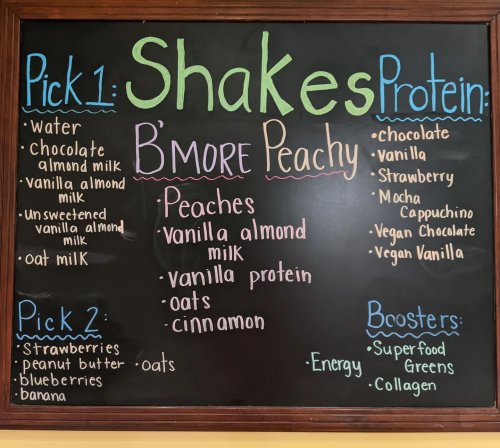 Shakes
Pick 1:
• Water
• Chocolate
almond milk
• Vanilla almond
milk
• unsweetened
vanilla almond
milk
• oat milk
B'MORE Peachy
• Peaches
• vanilla almond
milk
• vanilla protein
• oats
• cinnamon
Protein:
• chocolate
• vanilla
• Strawberry
• Mocha
Cappuchino
• Vegan Chocolate
• Vegan Vanilla
Pick 2
• Strawberries
• peanut butter • oats
• blueberries
• banana
Boosters:
• Superfood
Greens
• Energy
• Collagen